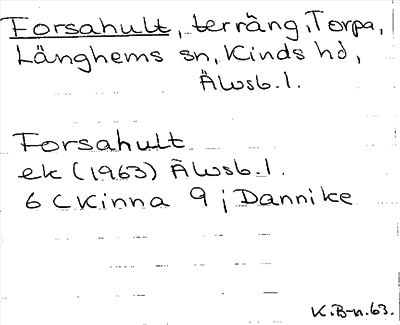 Forsahult, terräng, Torpa,
Länghems sn, Kinds hd,
Älvsb. l.
Forsahult
ek (1963) Älvsb. l.
6 C Kinna 9 j Dannike
K.B-n.63.